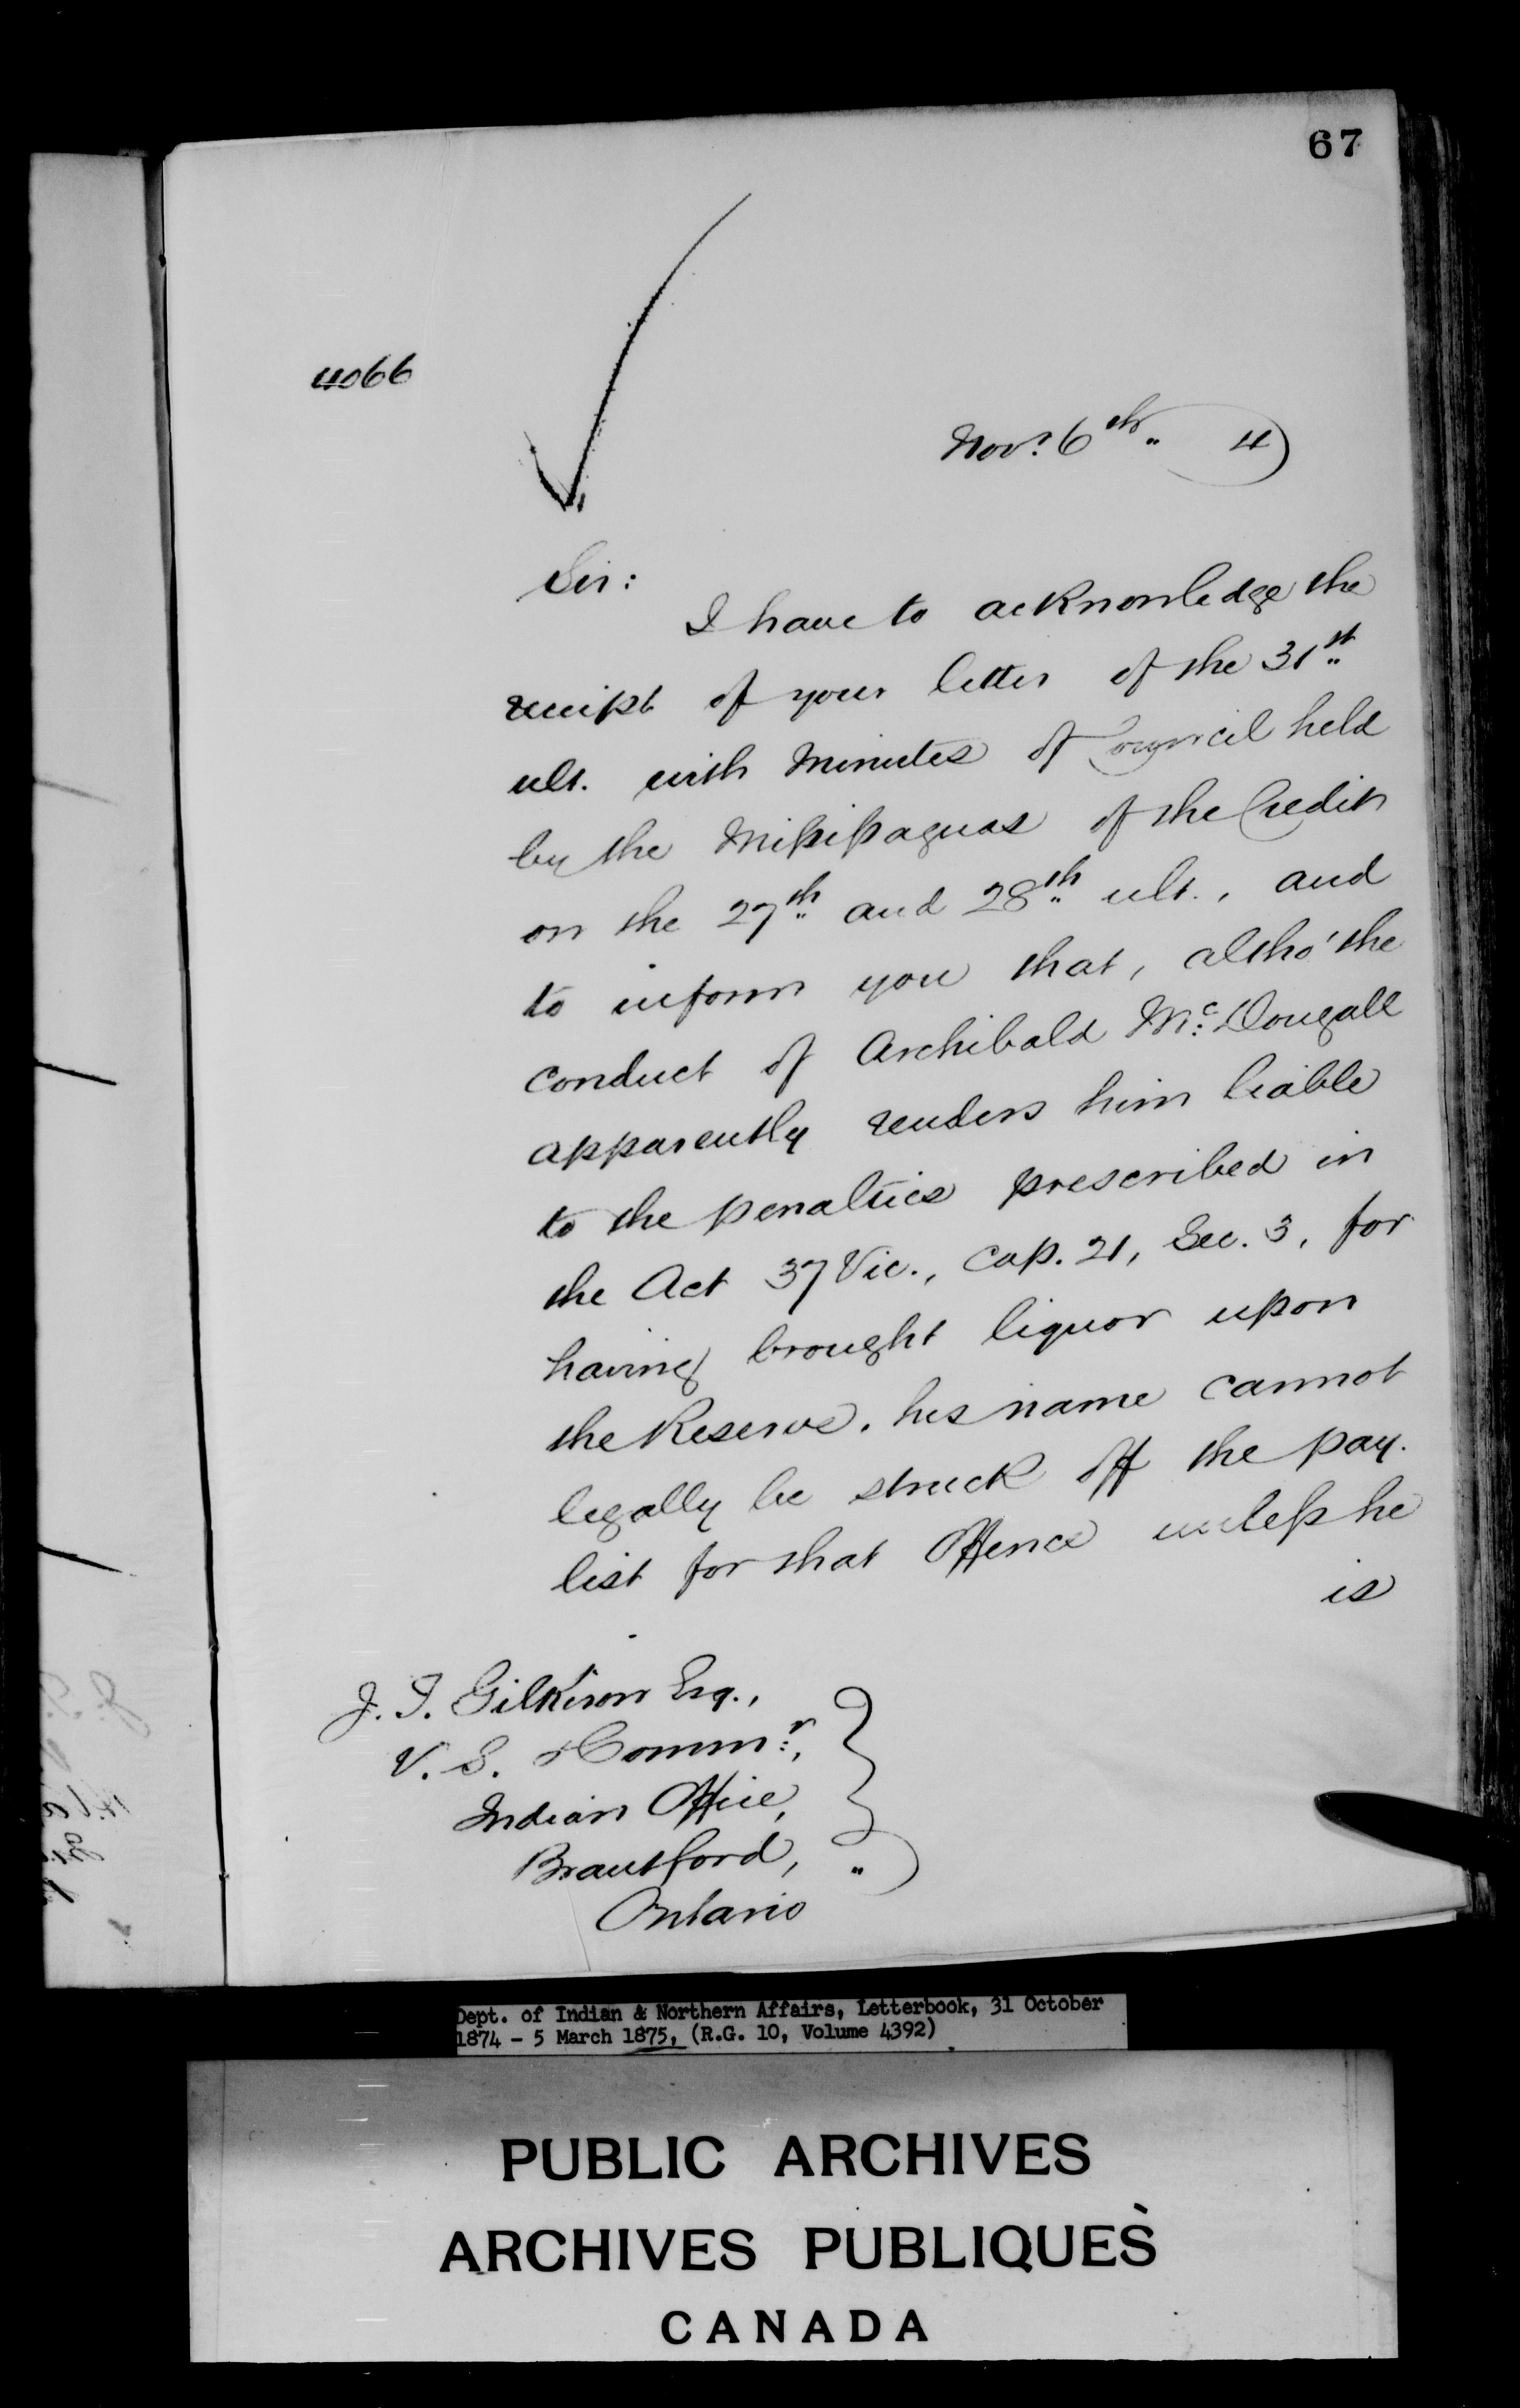 67
4066
Novr. 6th. 4
Sir:
I have to acknowledge the
receipt of your letter of the 31st
ult. with Minutes of Council held
by the Missisaguas of the Credit
on the 27th and 28th ult., and
to inform you that, altho' the
conduct of Archibald Mc. Dougall
apparently renders him liable
to the penalties prescribed in
the Act 37 Vic., Cap. 21, Sec. 3, for
having brought liquor upon
the Reserve, his name cannot
legally be struck off the pay-
list for that Offence unless he
is
J. T. Gilkison Esq.,
V. S. & Commr.,
Indian Office,
Brantford, "
Ontario
Dept. of Indian & Northern Affairs, Letterbook, 31 October
1874 - 5 March 1875, (R.G. 10, Volume 4392)
PUBLIC ARCHIVES
ARCHIVES PUBLIQUES
CANADA